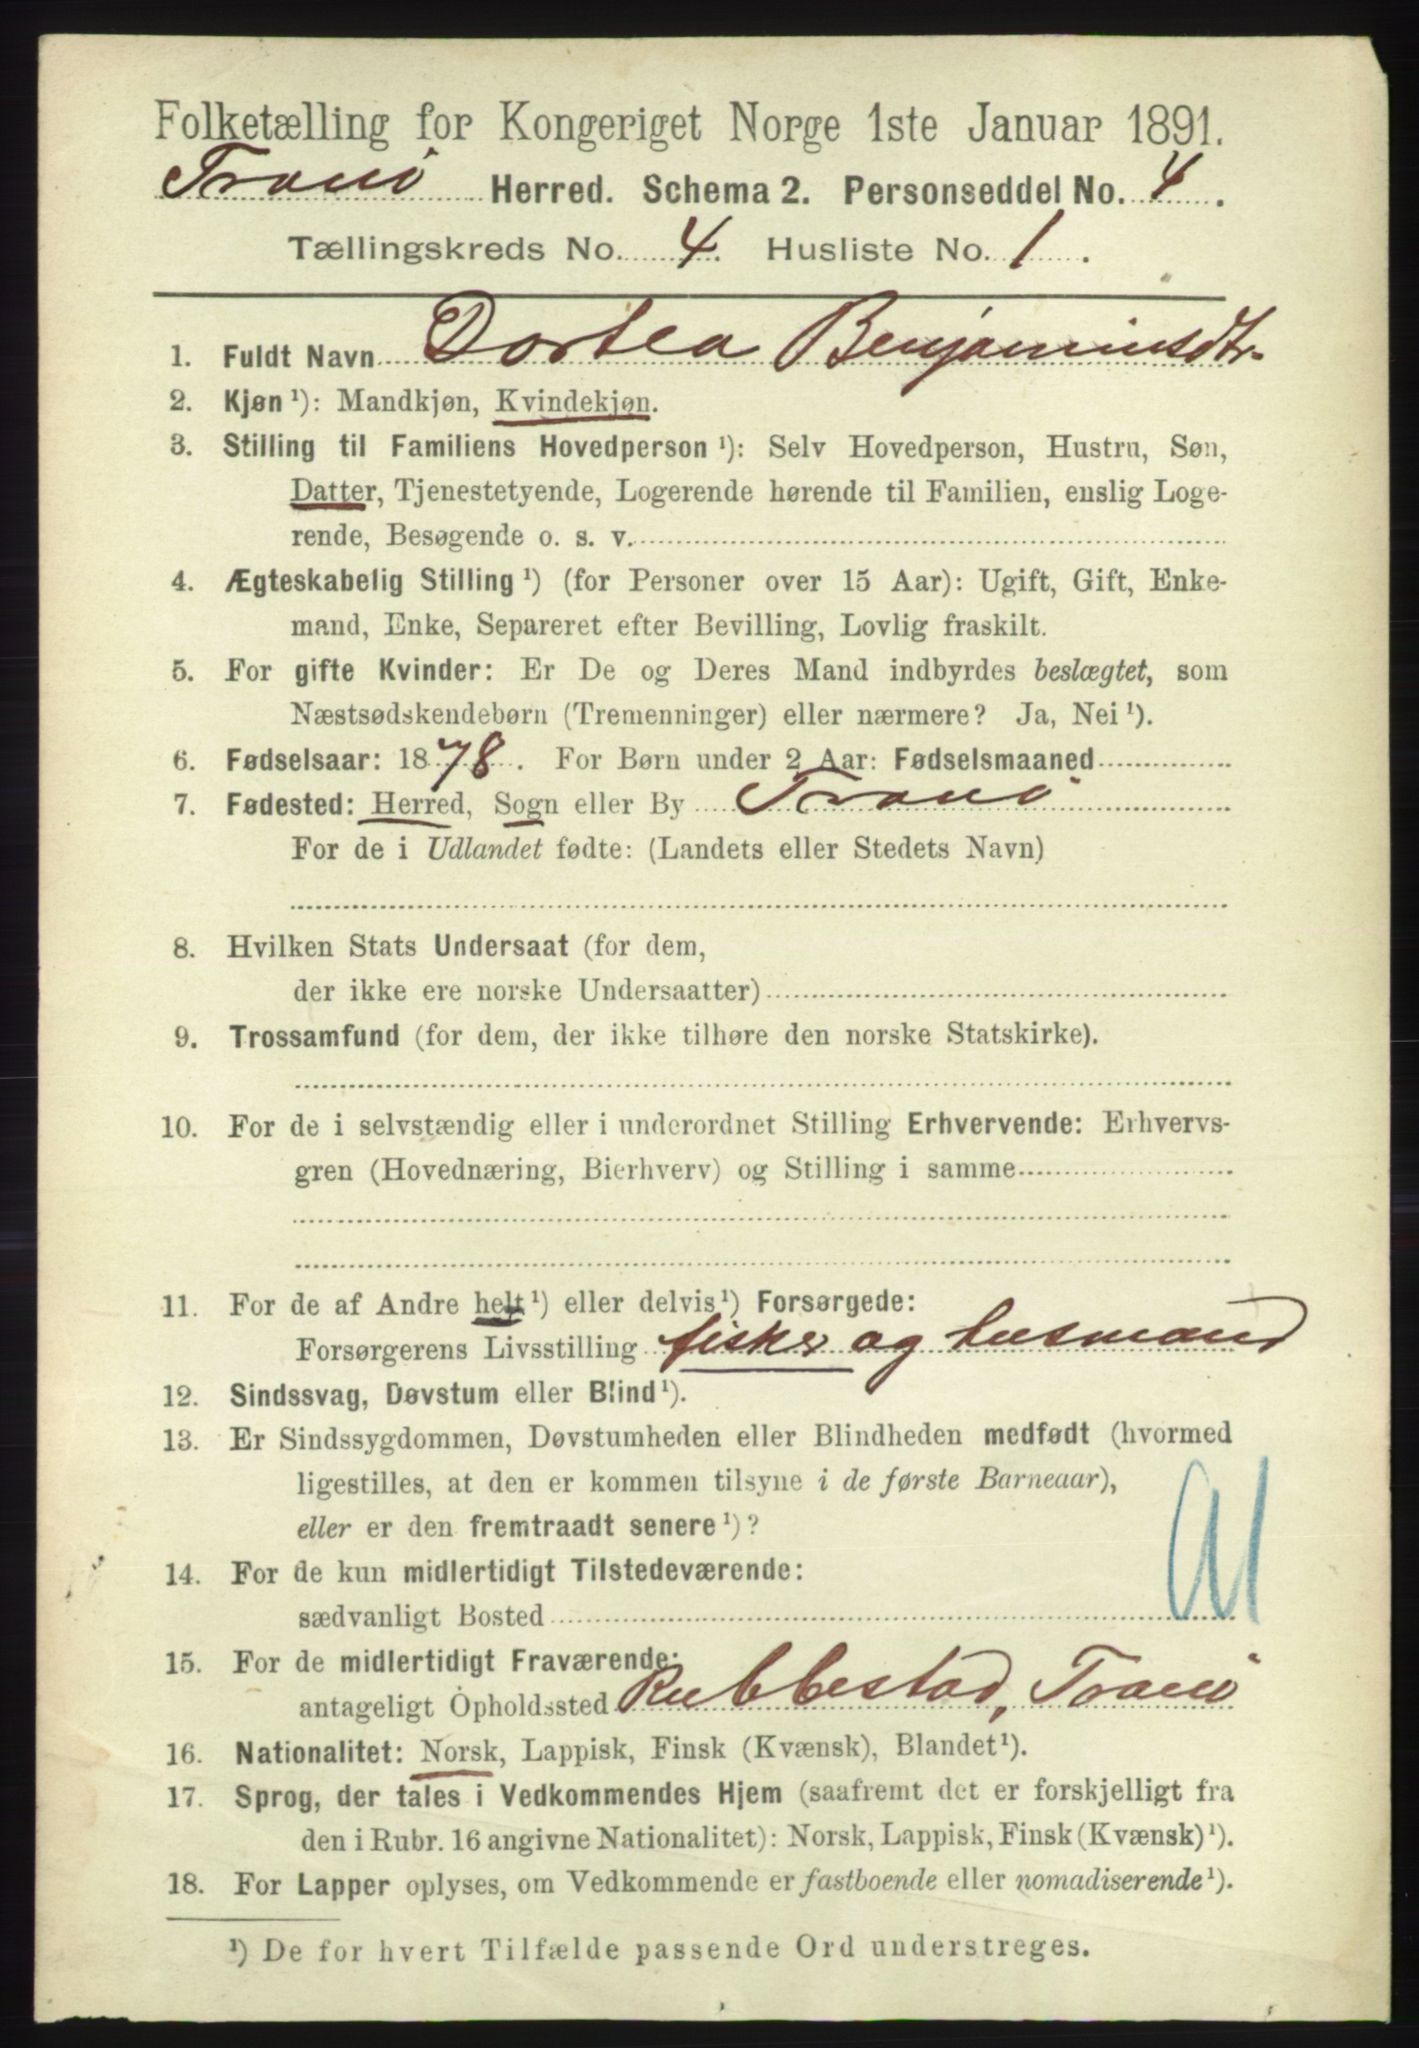 Folketælling for Kongeriget Norge 1ste Januar 1891.
Tranø Herred. Schema 2. Personseddel No. 4.
Tællingskreds No. 4. Husliste No. 1.
1. Fuldt Navn Dortea Benjaminsdtr.
2. Kjøn ¹): Mandkjøn, Kvindekjøn.
3. Stilling til Familiens Hovedperson ¹): Selv Hovedperson, Hustru, Søn,
Datter, Tjenestetyende, Logerende hørende til Familien, enslig Loge-
rende, Besøgende o. s. v.
4. Ægteskabelig Stilling ¹) (for Personer over 15 Aar): Ugift, Gift, Enke-
mand, Enke, Separeret efter Bevilling, Lovlig fraskilt.
5. For gifte Kvinder: Er De og Deres Mand indbyrdes beslægtet, som
Næstsødskendebørn (Tremenninger) eller nærmere? Ja, Nei ¹).
6. Fødselsaar: 1878. For Børn under 2 Aar: Fødselsmaaned
7. Fødested: Herred, Sogn eller By Tranø
For de i Udlandet fødte: (Landets eller Stedets Navn)
8. Hvilken Stats Undersaat (for dem,
der ikke ere norske Undersaatter)
9. Trossamfund (for dem, der ikke tilhøre den norske Statskirke).
10. For de i selvstændig eller i underordnet Stilling Erhvervende: Erhvervs-
gren (Hovednæring, Bierhverv) og Stilling i samme
11. For de af Andre helt ¹) eller delvis ¹) Forsørgede:
Forsørgerens Livsstilling fisker og husmand
12. Sindssvag, Døvstum eller Blind ¹).
13. Er Sindssygdommen, Døvstumheden eller Blindheden medfødt (hvormed
ligestilles, at den er kommen tilsyne i de første Barneaar),
eller er den fremtraadt senere ¹)?
14. For de kun midlertidigt Tilstedeværende:
sædvanligt Bosted
15. For de midlertidigt Fraværende:
antageligt Opholdssted Rubbestad, Tranø
16. Nationalitet: Norsk, Lappisk, Finsk (Kvænsk), Blandet ¹).
17. Sprog, der tales i Vedkommendes Hjem (saafremt det er forskjelligt fra
den i Rubr. 16 angivne Nationalitet): Norsk, Lappisk, Finsk (Kvænsk) ¹).
18. For Lapper oplyses, om Vedkommende er fastboende eller nomadiserende ¹).
¹) De for hvert Tilfælde passende Ord understreges.